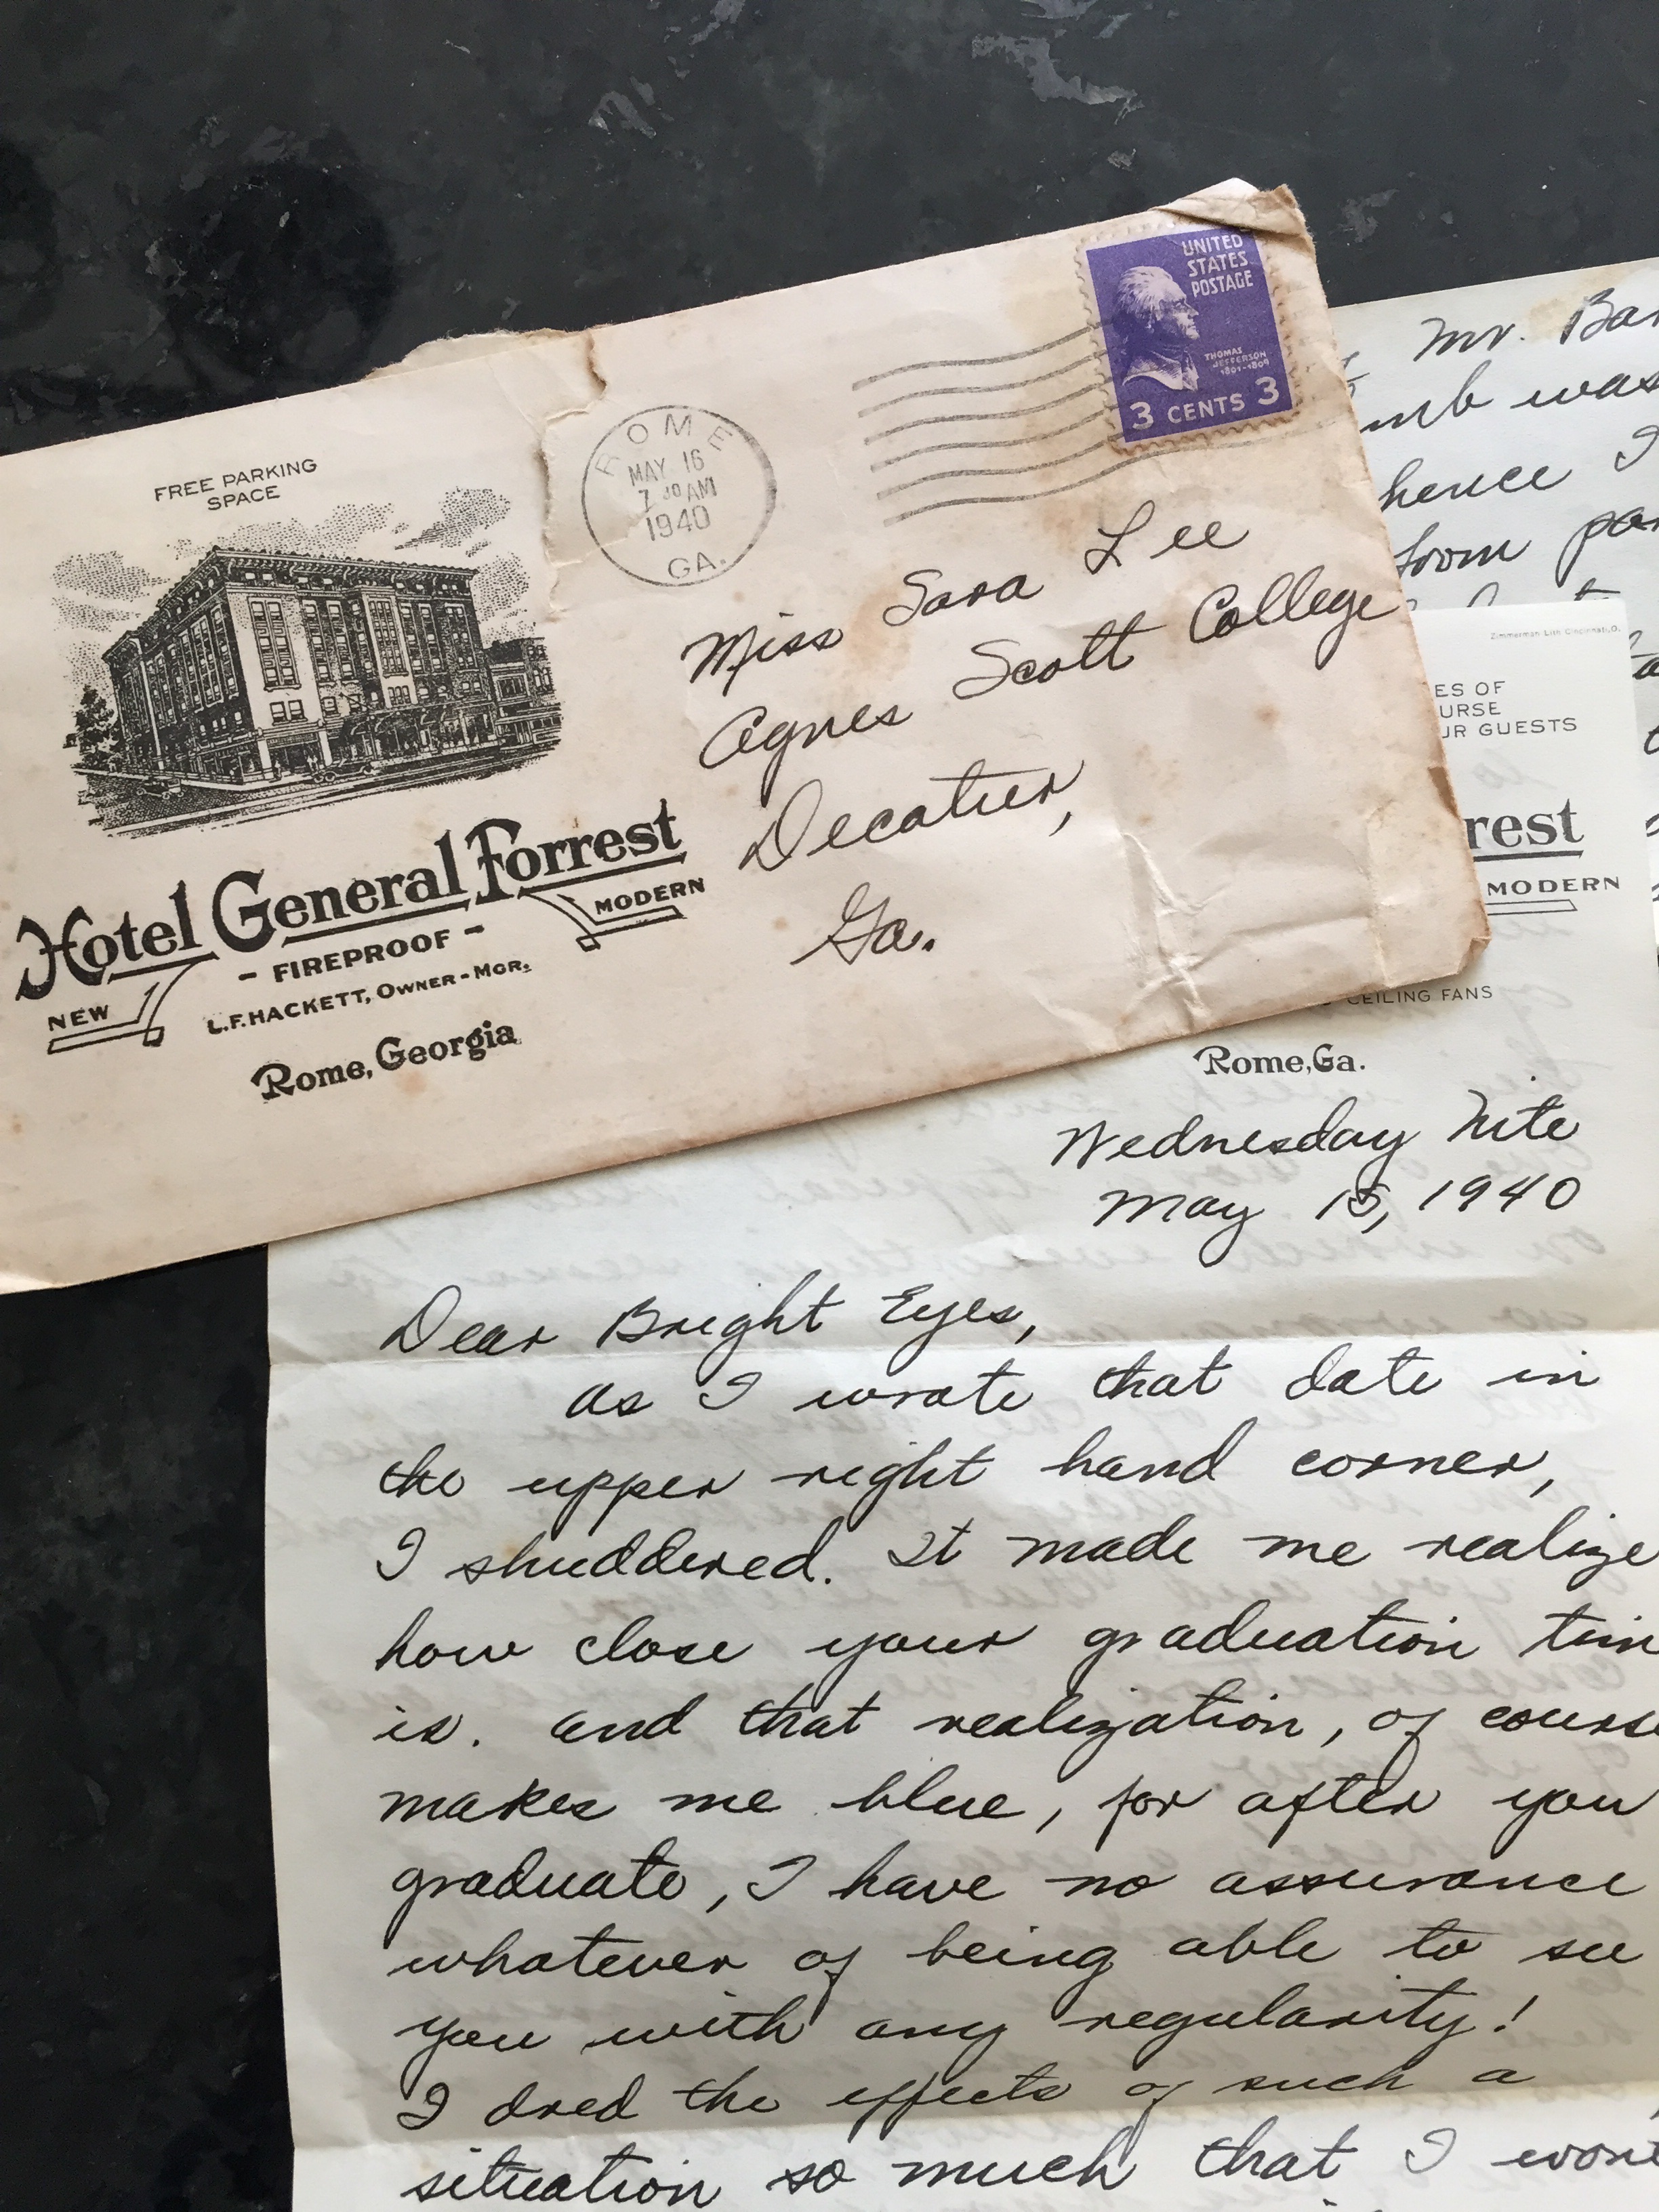 FREE PARKING
SPACE
Hotel General Forrest
NEW
- FIREPROOF -
MODERN
L.F. HACKETT, OWNER-MGR.
Rome, Georgia
ROME
MAY 16
7 30 AM
1940
GA.
UNITED
STATES
POSTAGE
THOMAS
JEFFERSON
1801-1809
3 CENTS 3
Miss Sara Lee
Agnes Scott College
Decatur,
Ga.
Mr. Bar
was
hence I
from par
Zimmerman Lith Cincinnati,O.
ES OF
URSE
UR GUESTS
rest
MODERN
CEILING FANS
Rome, Ga.
Wednesday Nite
May 15, 1940
Dear Bright Eyes,
As I wrote that date in
the upper right hand corner,
I shuddered. It made me realize
how close your graduation tim
is. And that realization, of course
makes me blue, for after you
graduate, I have no assurance
whatever of being able to see
you with any regularity!
I dred the effects of such a
situation so much that I wont